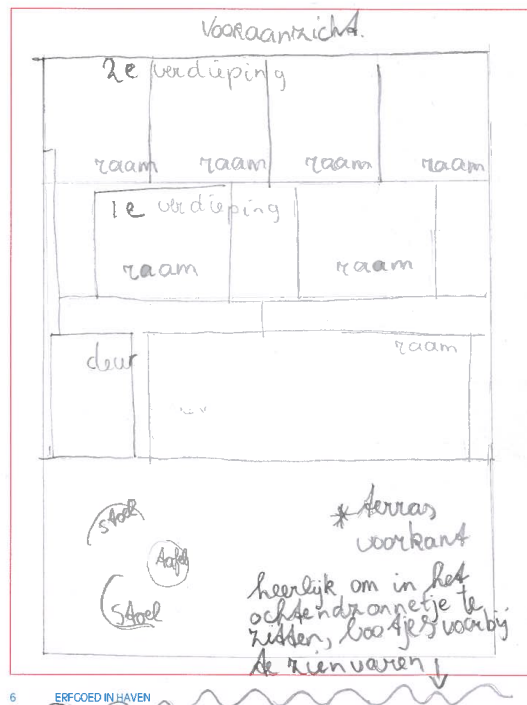 Vooraanzicht.
2e verdieping
raam raam raam raam
1e verdieping
raam raam
deur raam
stoel
tafel
stoel
* terras
voorkant
heerlijk om in het
ochtendzonnetje te
zitten, bootjes voorbij
te zien varen ↓
6 ERFGOED IN HAVEN